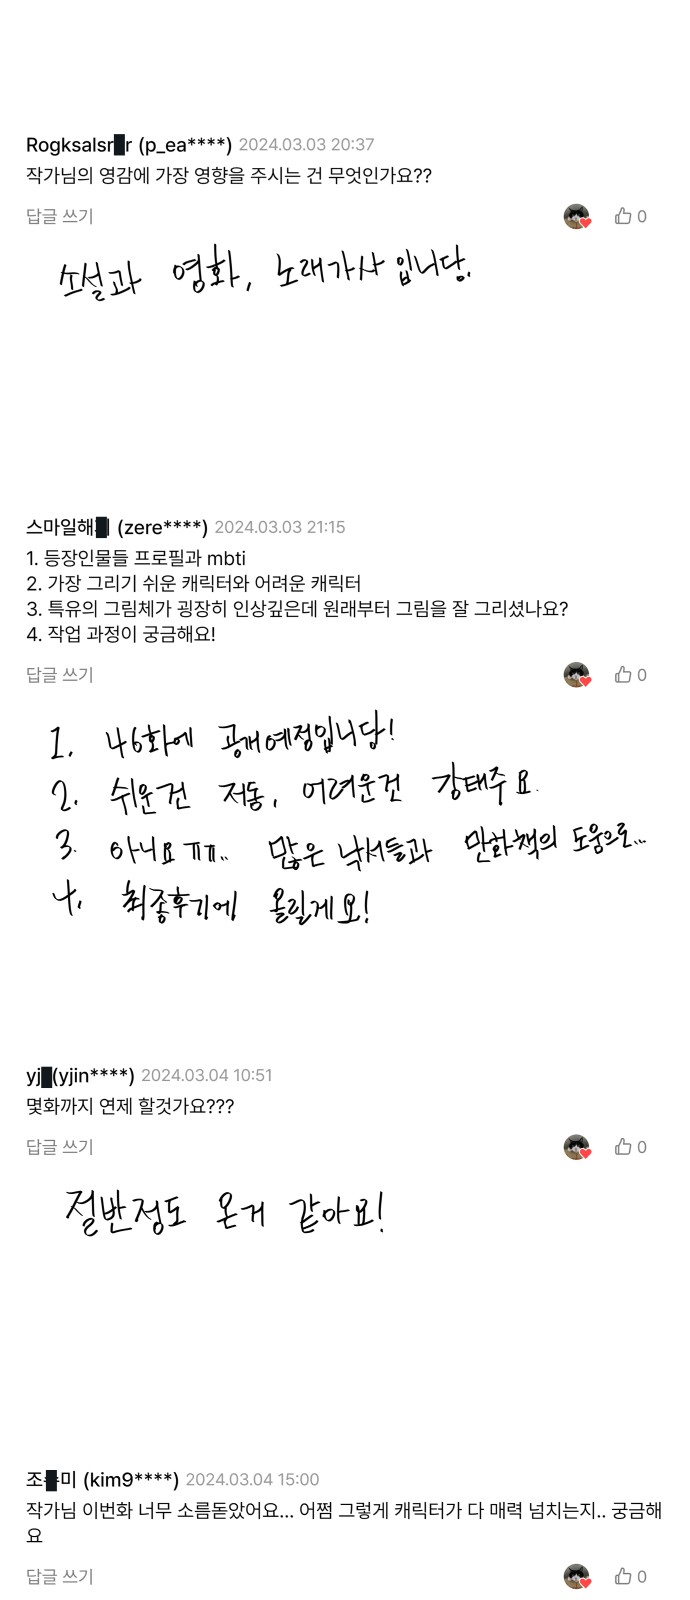 Rogksalsr r (p_ea****) 2024.03.03 20:37
작가님의 영감에 가장 영향을 주시는 건 무엇인가요??
답글 쓰기 0
소설과 영화, 노래가사입니당.
스마일해 (zere****) 2024.03.03 21:15
1. 등장인물들 프로필과 mbti
2. 가장 그리기 쉬운 캐릭터와 어려운 캐릭터
3. 특유의 그림체가 굉장히 인상깊은데 원래부터 그림을 잘 그리셨나요?
4. 작업 과정이 궁금해요!
답글 쓰기 0
1. 46화에 공개예정입니당!
2. 쉬운건 저동, 어려운건 강태주요.
3. 아니요ㅠㅠ.. 많은 낙서들과 만화책의 도움으로...
4. 최종후기에 올릴게요!
yj (yjin****) 2024.03.04 10:51
몇화까지 연제 할것가요???
답글 쓰기 0
절반정도 온거 같아요!
조 미 (kim9****) 2024.03.04 15:00
작가님 이번화 너무 소름돋았어요... 어쩜 그렇게 캐릭터가 다 매력 넘치는지.. 궁금해
요
답글 쓰기 0